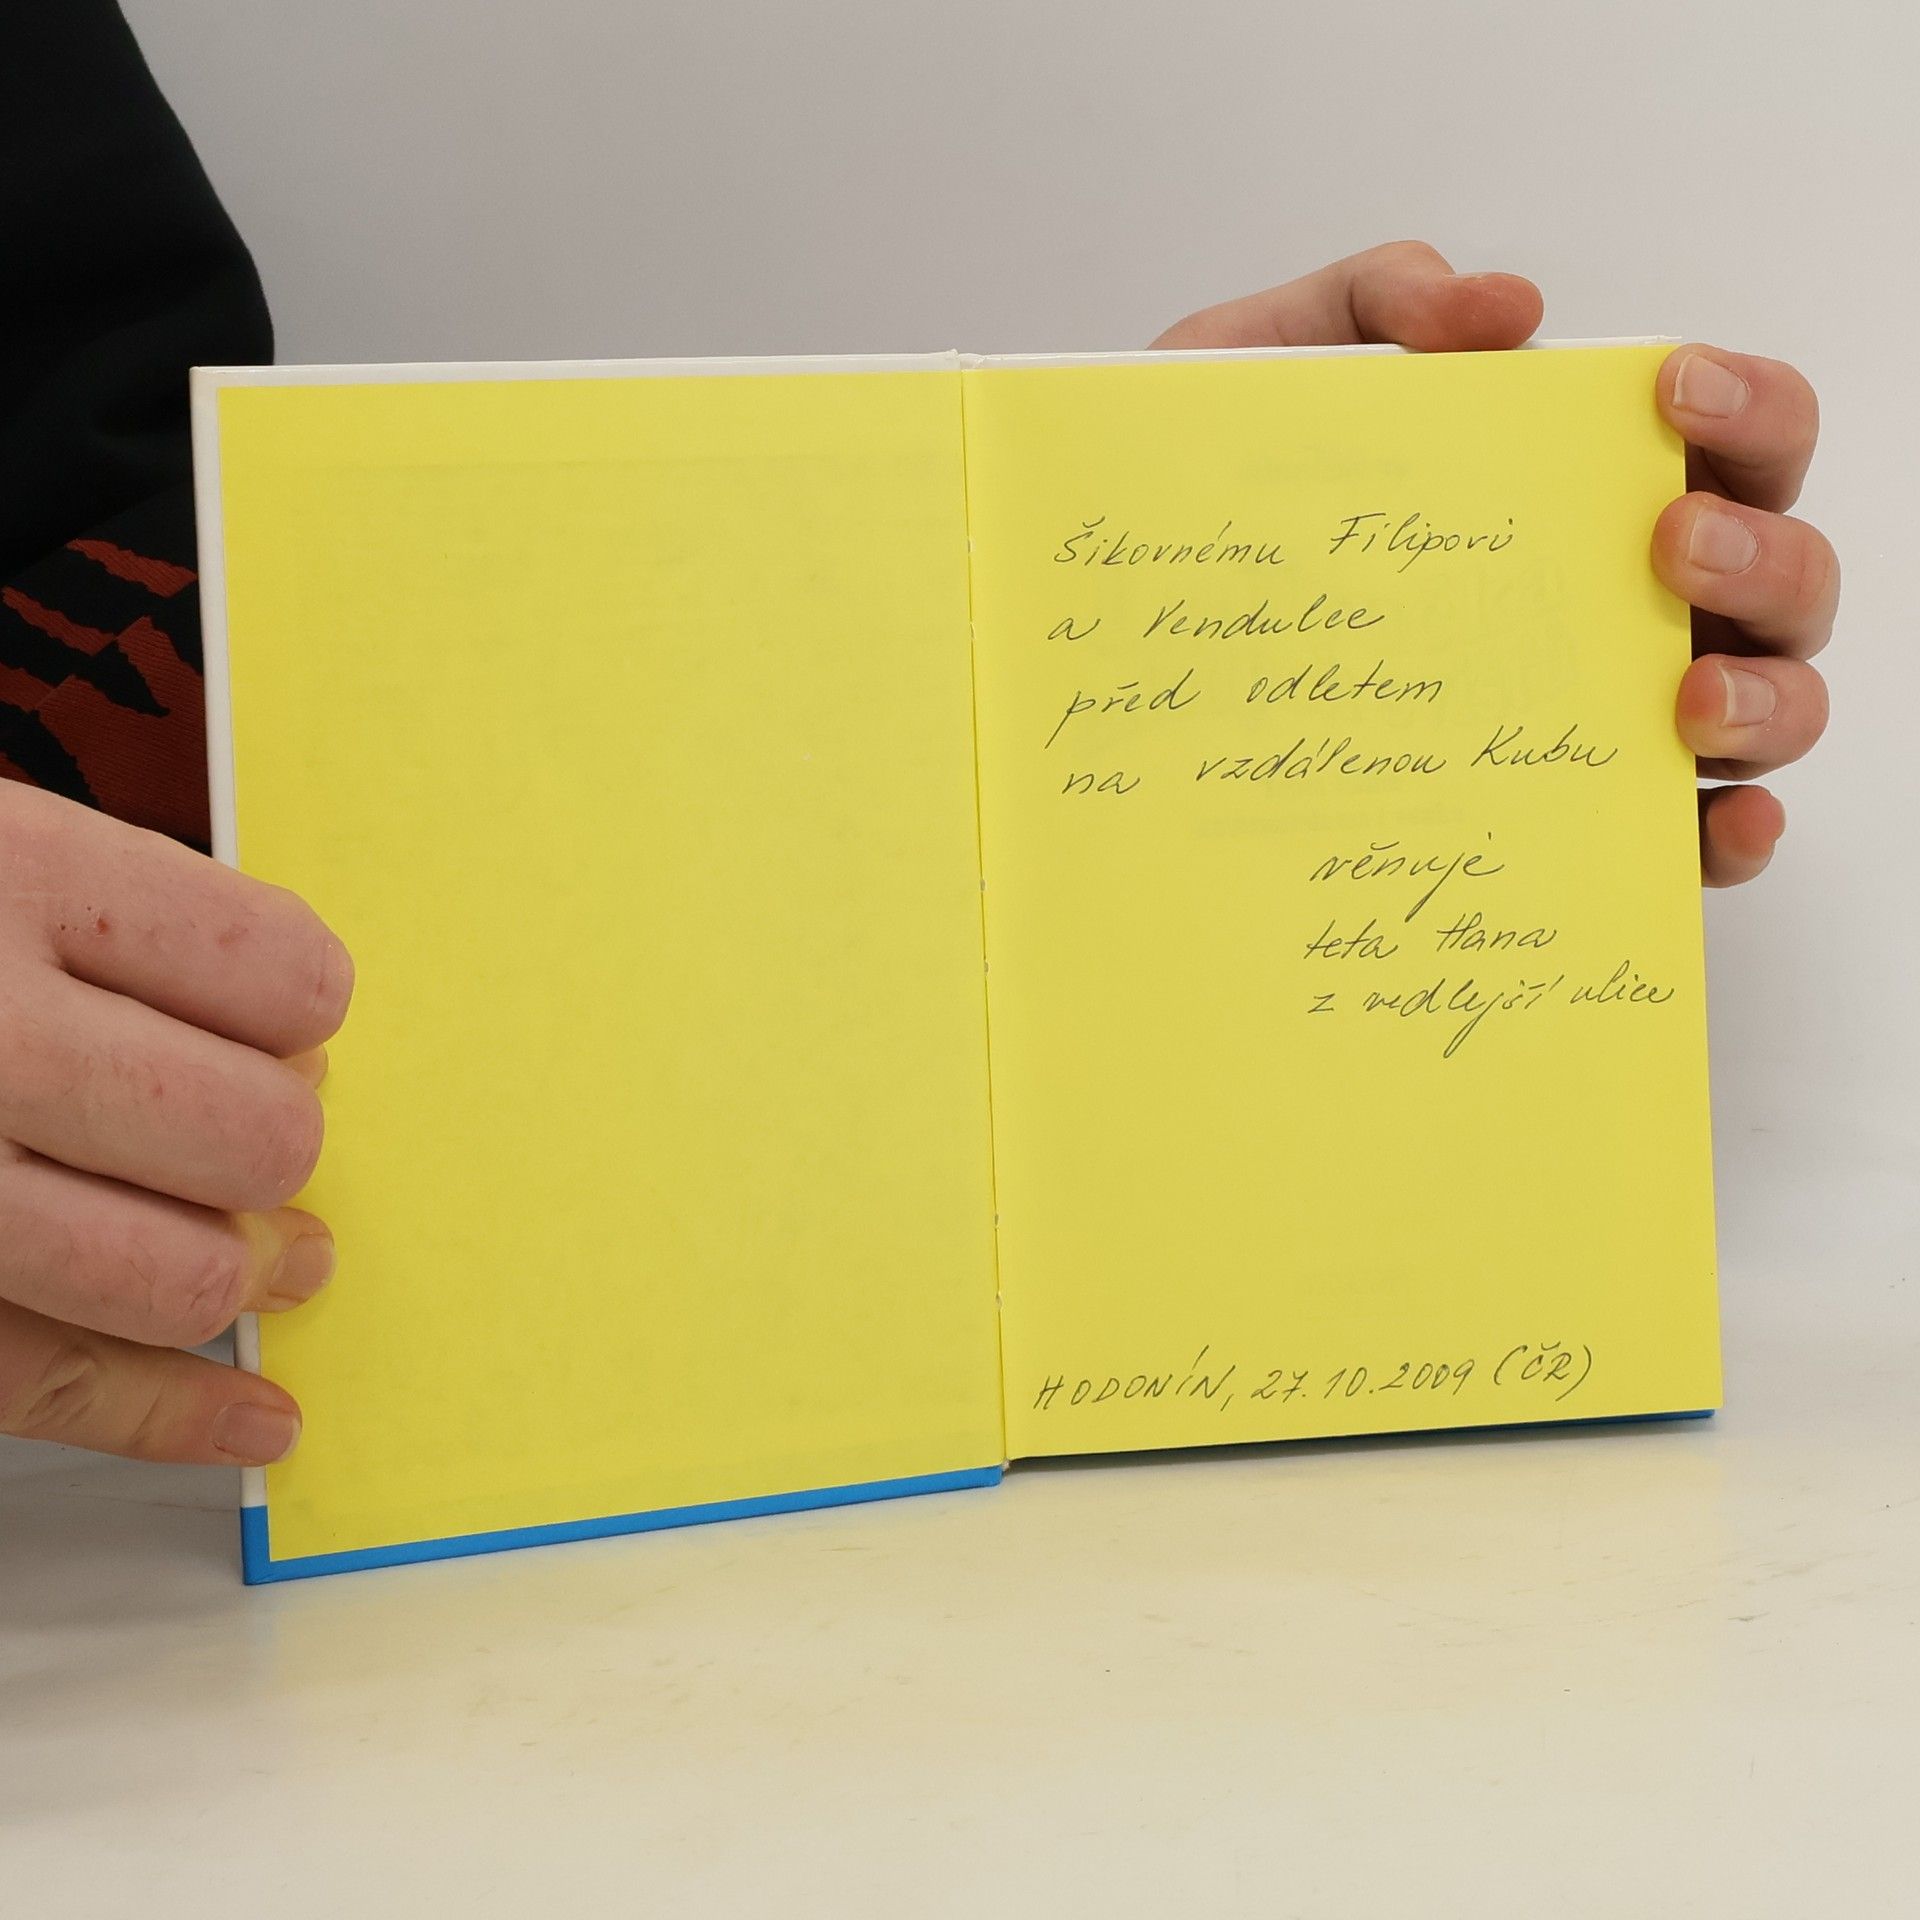 Šikovnému Filipovi
a Vendulce
před odletem
na vzdálenou Kubu
věnuje
teta Hana
z vedlejší ulice
HODONÍN, 27.10.2009 (ČR)